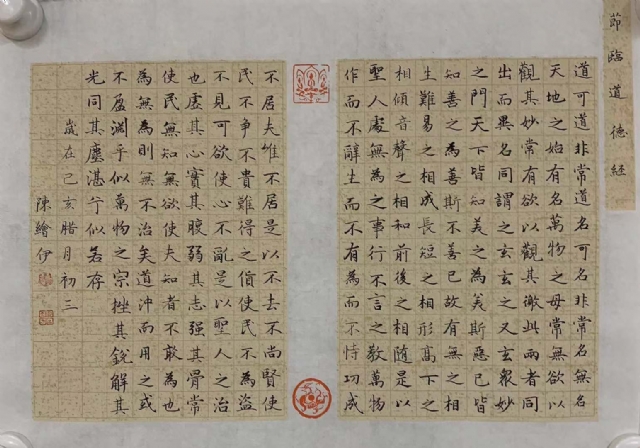 節臨道德經
道可道非常道名可名非常名無名
天地之始有名萬物之母常無欲以
觀其妙常有欲以觀其徼此兩者同
出而異名同謂之玄玄之又玄眾妙
之門天下皆知美之為美斯惡已皆
知善之為善斯不善已故有無之相
生難易之相成長短之相形高下之
相傾音聲之相和前後之相隨是以
聖人處無為之事行不言之教萬物
作而不辭生而不有為而不恃功成
不居夫唯不居是以不去不尚賢使
民不爭不貴難得之貨使民不為盜
不見可欲使心不亂是以聖人之治
也虛其心實其腹弱其志強其骨常
使民無知無欲使夫知者不敢為也
為無為則無不治矣道沖而用之或
不盈淵乎似萬物之宗挫其銳解其
光同其塵湛兮似若存
歲在己亥腊月初三
陳繪伊